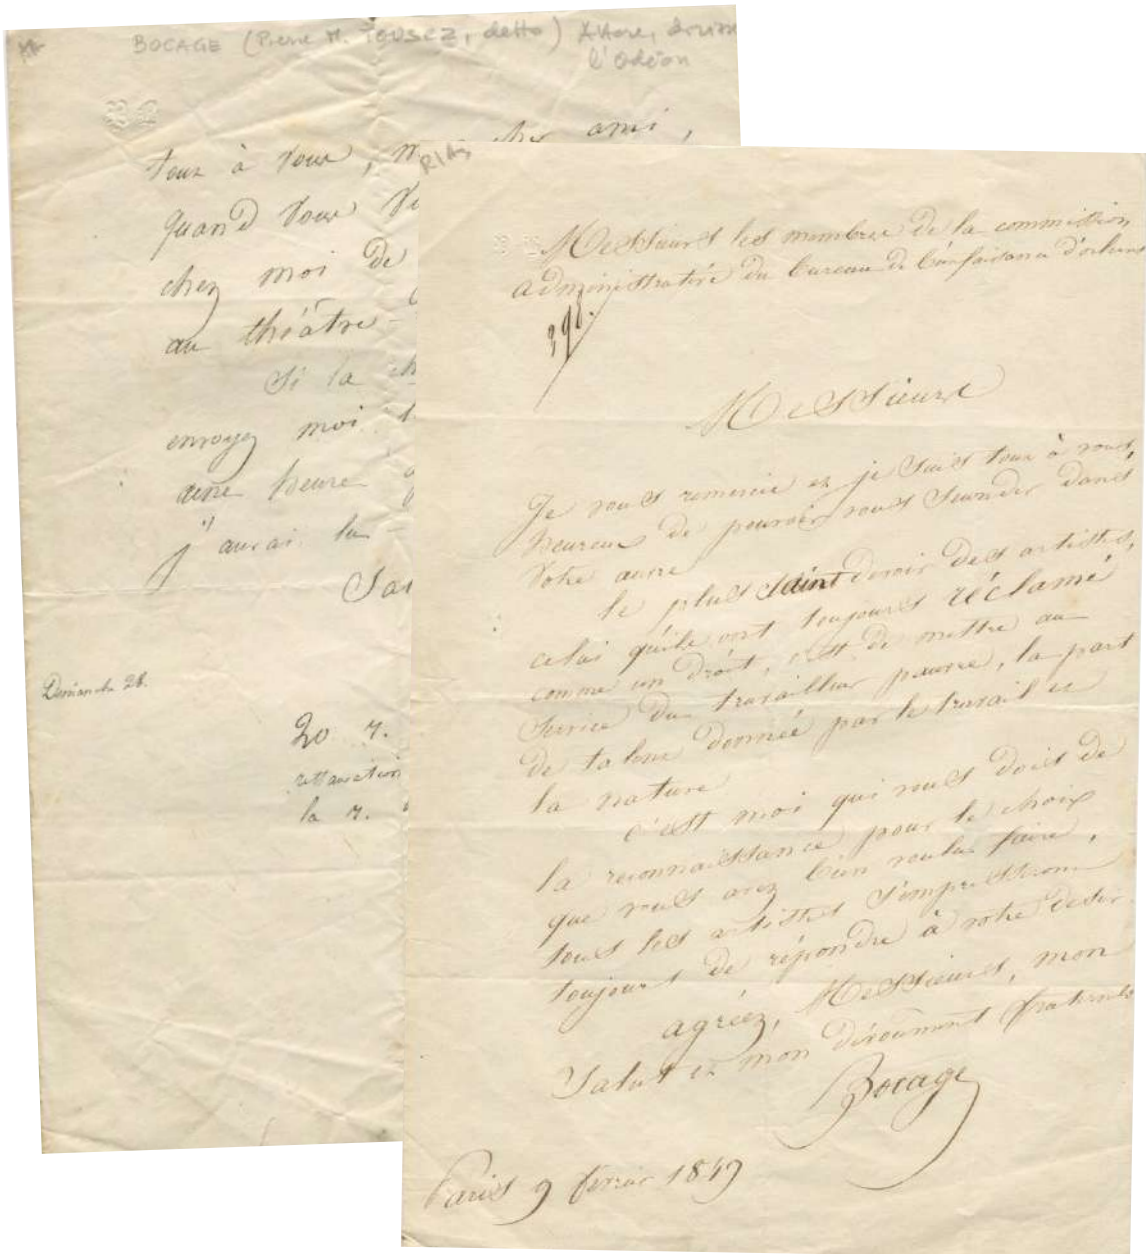 BOCAGE (Pierre M. TOUSEZ, detto) Attore,
l'Odéon
tout à vous, cher ami,
quand vous
chez moi de
au théâtre
Si la
envoyez moi
une heure
j'aurai
Sa
Dimanche 28.
20 r.
la r.
Messieurs les membres de la commission
administrative du bureau de bienfaisance d'orléans
398.
Messieurs
Je vous remercie et je suis tout à vous,
heureux de pouvoir vous seconder dans
votre œuvre
le plus saint devoir des artistes,
celui qu'ils ont toujours réclamé
comme un droit, c'est de mettre au
service du travailleur pauvre, la part
de talent donnée par le travail et
la nature
c'est moi qui vous dois de
la reconnaissance pour le choix
que vous avez bien voulu faire.
tous les artistes s'empresseront
toujours de répondre à votre desir.
agréez, Messieurs, mon
Salut et mon dévoument fraternel
Bocage
Paris 9 février 1849